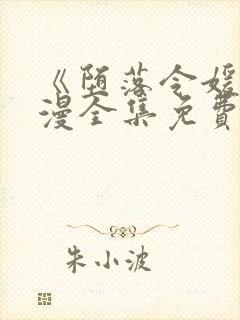 《堕落令媛
漫全集免費
朱小波